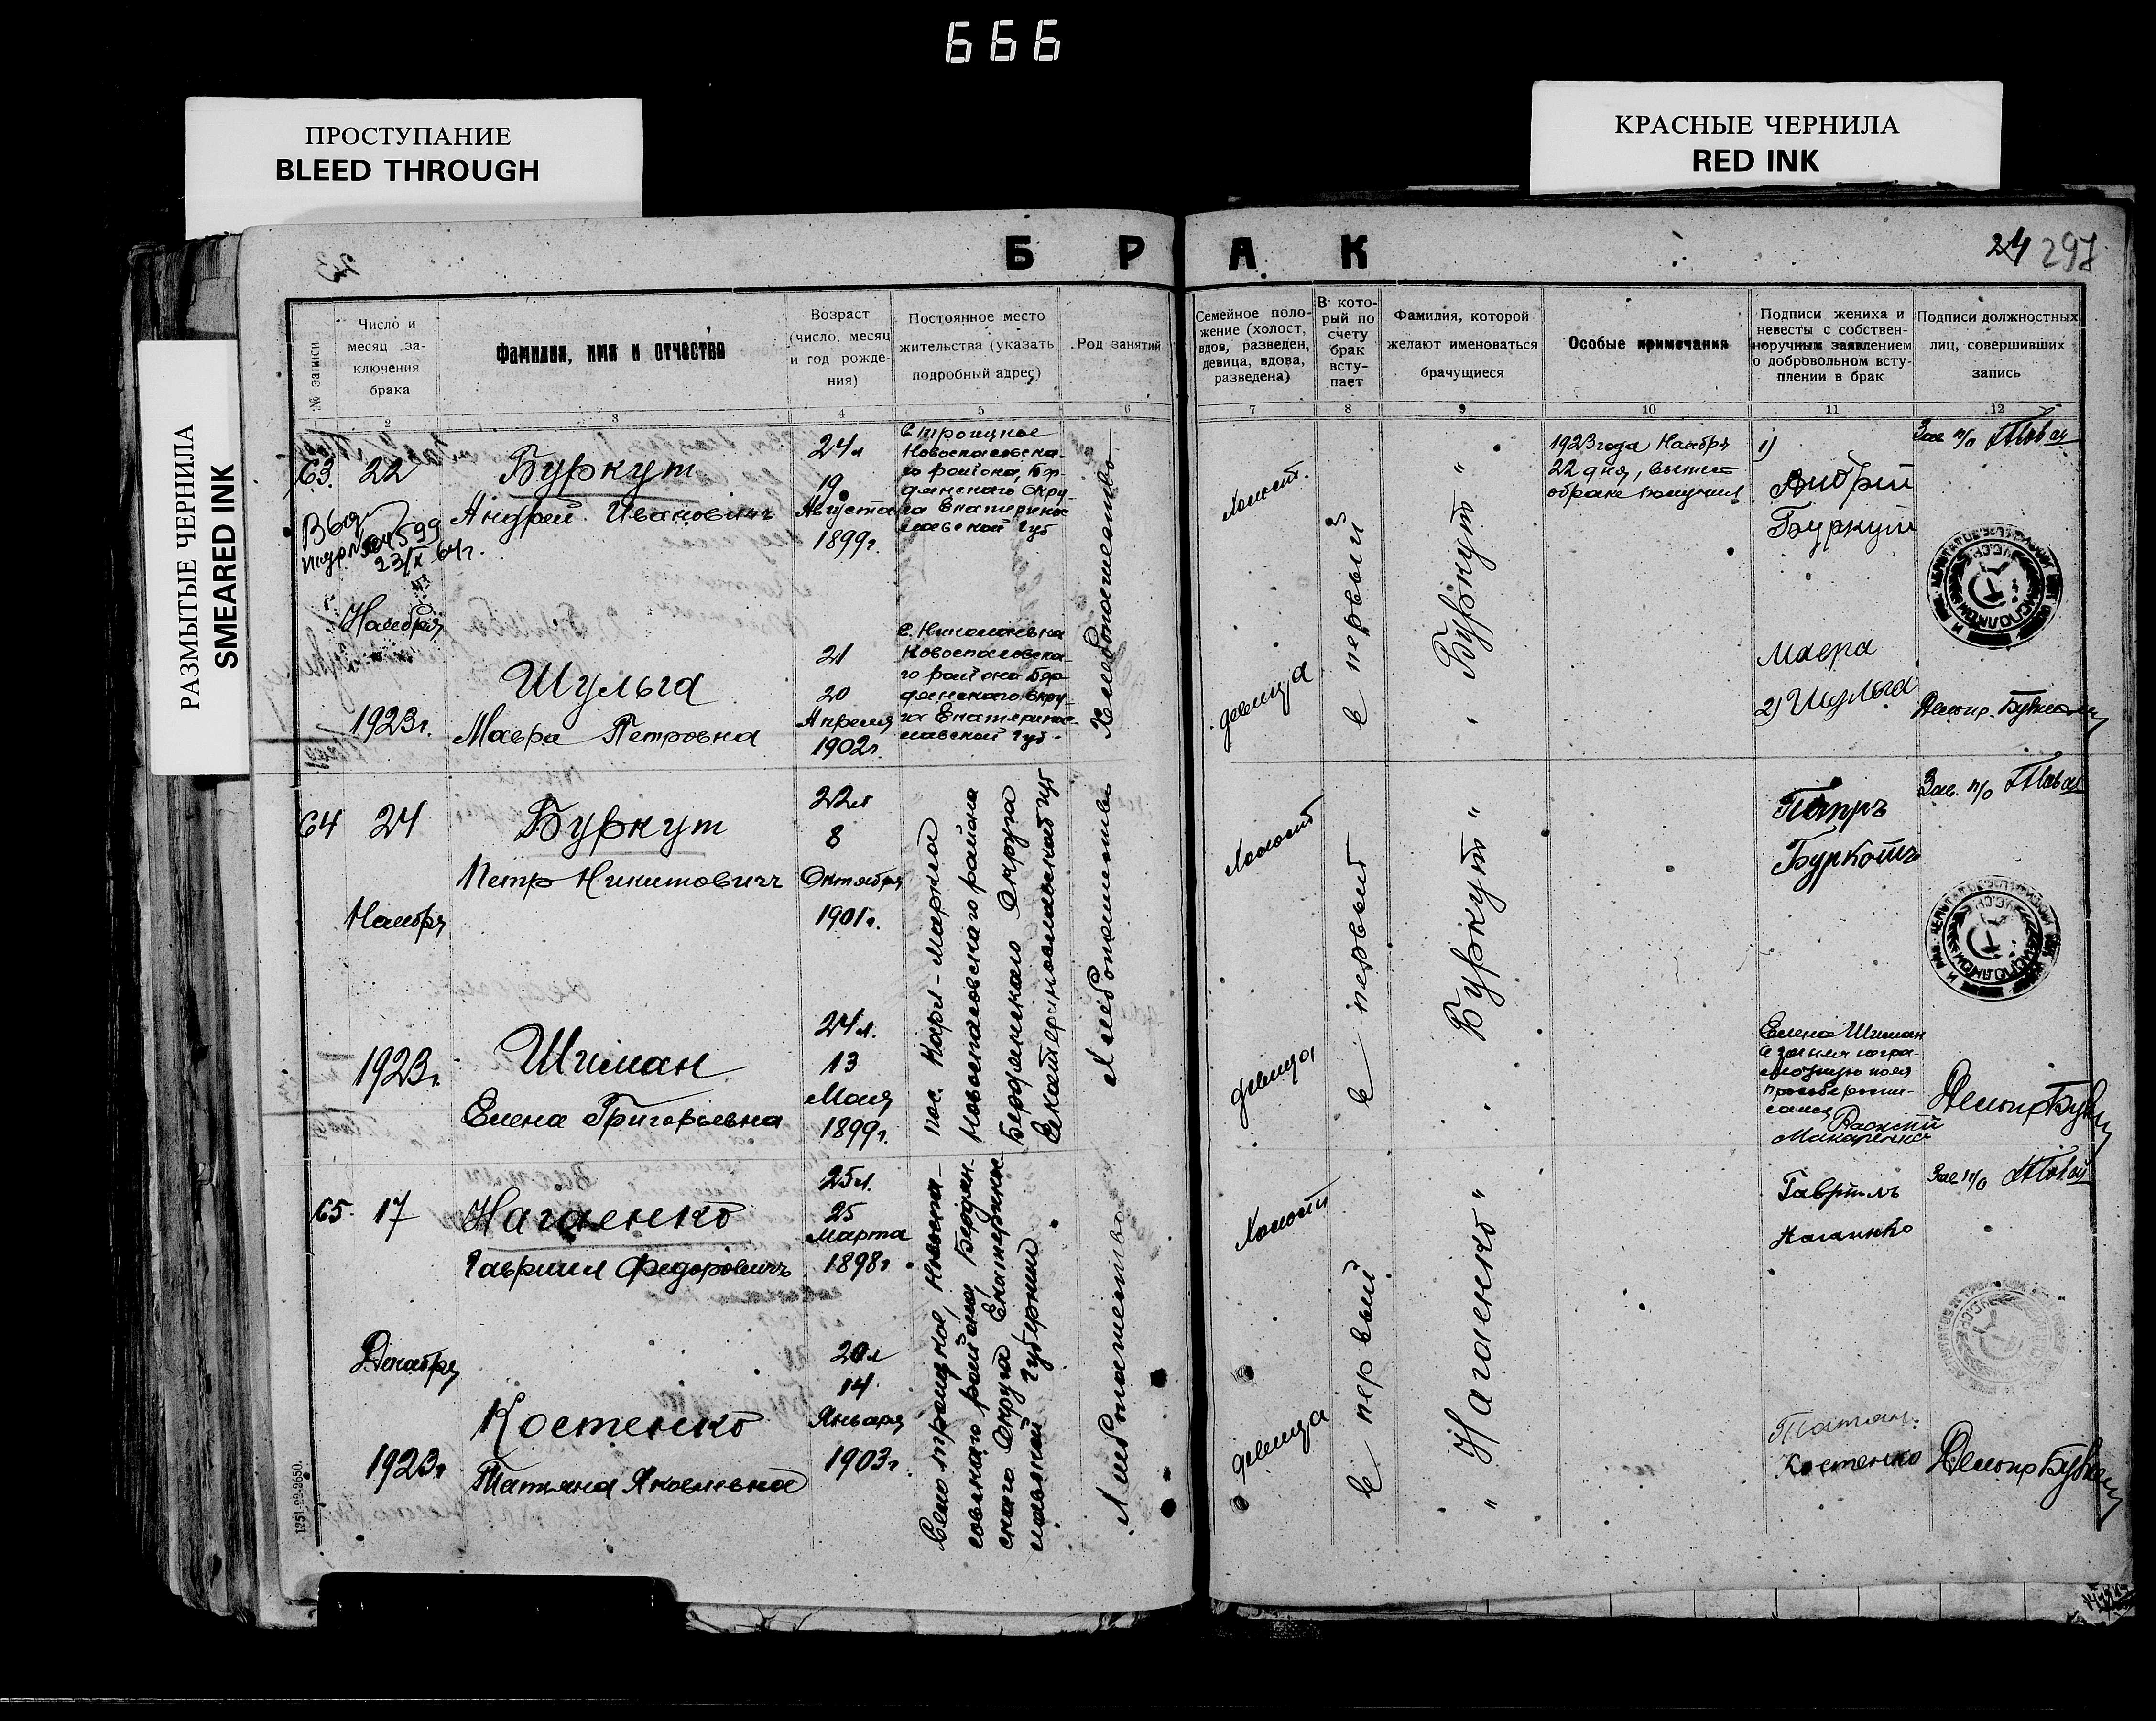 666
ПРОСТУПАНИЕ
BLEED THROUGH
КРАСНЫЕ ЧЕРНИЛА
RED INK
РАЗМЫТЫЕ ЧЕРНИЛА
SMEARED INK
БРАК
24 297
№ записи
Число и
месяц за-
ключения
брака
Фамилия, имя и отчество
Возраст
(число, месяц
и год рожде-
ния)
Постоянное место
жительства (указать
подробный адрес)
Род занятий
Семейное поло-
жение (холост,
вдов, разведен,
девица, вдова,
разведена)
В кото-
рый по
счету
брак
всту-
пает
Фамилия, которой
желают именоваться
брачущиеся
Особые примечания
Подписи жениха и
невесты с собствен-
норучным заявлением
о добровольном всту-
плении в брак
Подписи должностных
лиц, совершивших
запись
2 3 4 5 6 7 8 9 10 11 12
63
22
Ноября
1923г.
599
23/X 64г.
Буркут
Андрей Иванович
24л
19
Августа
1899г.
с Троицкое
Новоспасовска-
го района, Бер-
дянского Окру-
га Екатерино
славской губ
Хлебопашество
Холост.
в первый
" Буркут "
1923 года Ноября
22 дня, выпись
о браке получил
1)
Андрій
Буркут
Зав. п/о
Шульга
Мавра Петровна
21
20
Апреля
1902г.
с. Николаевка
Новоспасовска-
го района Бер-
дянского Окру-
га Екатерино-
славской губ.
девица
Мавра
2) Шульга
64
24
Ноября
1923г.
Буркут
Петр Никитович
22л
8
Октября
1901г.
пос. Карл-Маркса
Новоспасовского района
Бердянского Округа
Екатеринославской губ
Хлебопашество
Холост
в первый
Буркут "
Петръ
Буркотъ
Зав. п/о
Шиман
Елена Григорьевна
24л.
13
Мая
1899г.
девица
Елена Шиман
Макаренко
65
17
Декабря
1923г
Нагаенко
Гавриил Федорович
25л.
25
Марта
1898г
Село Троицкое, Новоспа-
совского района, Бердян-
ского Округа Екатерино-
славской Губернии
Хлебопашество
Холост
в первый
" Нагаенко "
Гаврилъ
Нагаинко
Зав п/о
Костенко
Татьяна Яковлевна
20л
14
Января
1903г
девица
Татьян.
Костенко
1251-22-3650.